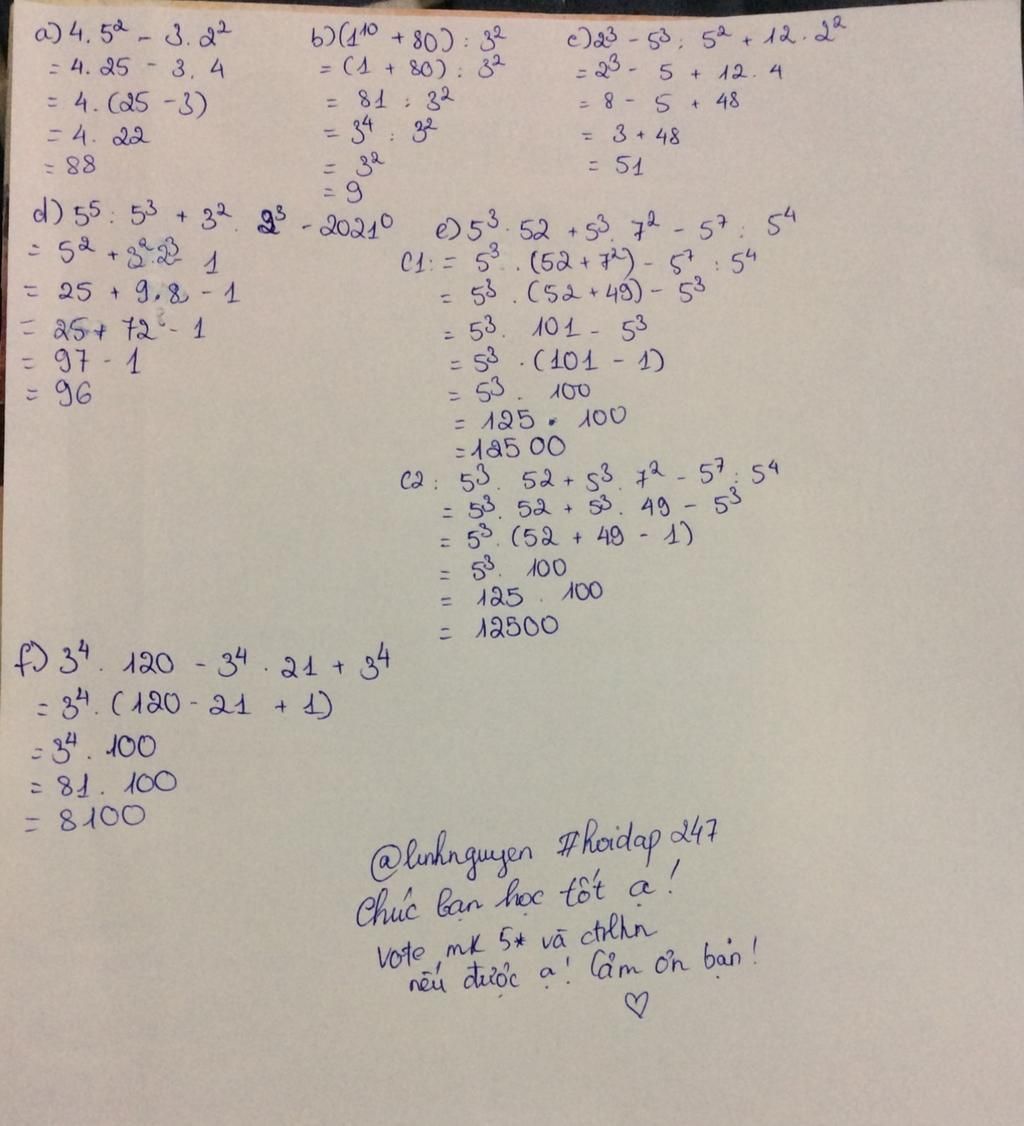 a) 4. 5² - 3. 2²
= 4. 25 - 3. 4
= 4. (25 - 3)
= 4. 22
= 88
b) (1¹⁰ + 80) : 3²
= (1 + 80) : 3²
= 81 : 3²
= 3⁴ : 3²
= 3²
= 9
c) 2³ - 5³ : 5² + 12. 2²
= 2³ - 5 + 12. 4
= 8 - 5 + 48
= 3 + 48
= 51
d) 5⁵ : 5³ + 3². 2³ - 2021⁰
= 5² + 3². 2³ 1
= 25 + 9.8 - 1
= 25 + 72 - 1
= 97 - 1
= 96
e) 5³. 52 + 5³. 7² - 5⁷ : 5⁴
C1: = 5³. (52 + 7²) - 5⁷ : 5⁴
= 5³. (52 + 49) - 5³
= 5³. 101 - 5³
= 5³. (101 - 1)
= 5³. 100
= 125. 100
= 12500
C2: 5³. 52 + 5³. 7² - 5⁷ : 5⁴
= 5³. 52 + 5³. 49 - 5³
= 5³. (52 + 49 - 1)
= 5³. 100
= 125. 100
= 12500
f) 3⁴. 120 - 3⁴. 21 + 3⁴
= 3⁴. (120 - 21 + 1)
= 3⁴. 100
= 81. 100
= 8100
@linhnguyen #hoidap247
Chúc bạn học tốt ạ!
Vote mk 5* và ctrlhn
nếu được ạ! Cảm ơn bạn!
♡